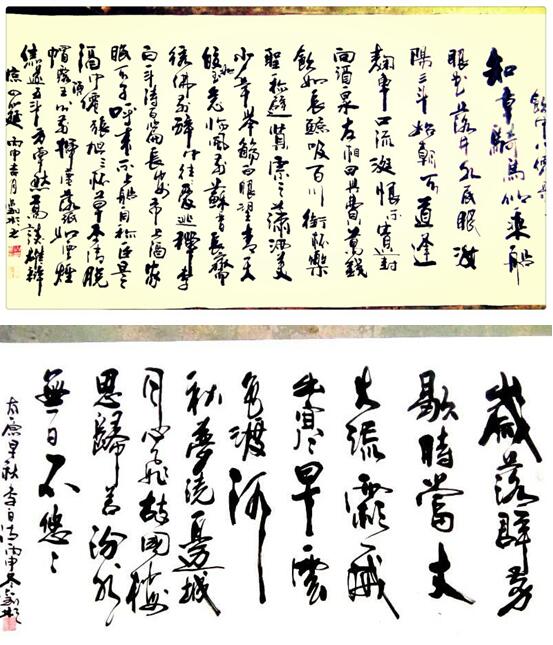 飲中八仙歌
知章騎馬似乘船
眼花落井水底眠汝
陽三斗始朝天道逢
麴車口流涎恨不封
向酒泉左相日興費萬錢
飲如長鯨吸百川銜杯樂
聖稱避賢宗之瀟洒美
少年舉觴白眼望青天
皎如玉樹臨風前蘇晉長齋
繡佛前醉中往往愛逃禪李
白斗酒詩百篇長安市上酒家
眠天子呼來不上船自稱臣是
酒中僊張旭三杯草聖傳脫
帽露頂王公前揮毫落紙如雲煙
焦遂五斗方卓然高談雄辯
驚四筵 丙申 月
歲落眾芳
歇時當大
火流霜威
出塞早雲
色渡河
秋夢繞邊城
月心飛故國樓
思歸若汾水
無日不悠〻
太原早秋李白詩丙申冬